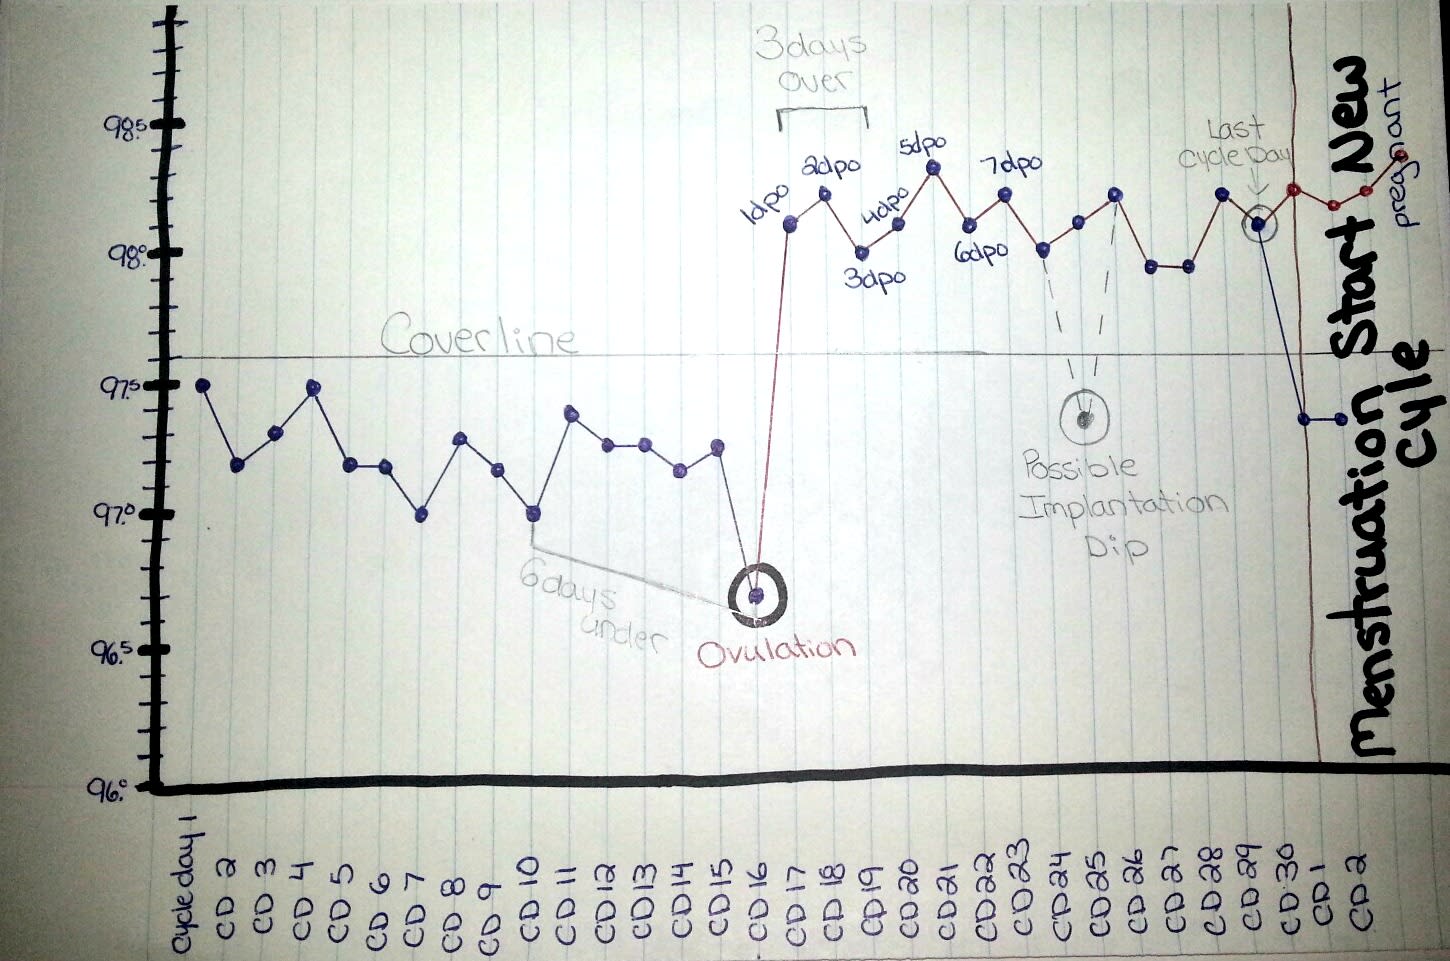 3days
over
98.5
98.°
97.5
97.°
96.5
96.°
Coverline
1dpo
2dpo
3dpo
4dpo
5dpo
6dpo
7dpo
Last
Cycle Day
pregnant
Possible
Implantation
Dip
6days
under
Ovulation
Menstruation Start New
Cyle
Cycle day 1
CD 2
CD 3
CD 4
CD 5
CD 6
CD 7
CD 8
CD 9
CD 10
CD 11
CD 12
CD 13
CD 14
CD 15
CD 16
CD 17
CD 18
CD 19
CD 20
CD 21
CD 22
CD 23
CD 24
CD 25
CD 26
CD 27
CD 28
CD 29
CD 30
CD 1
CD 2